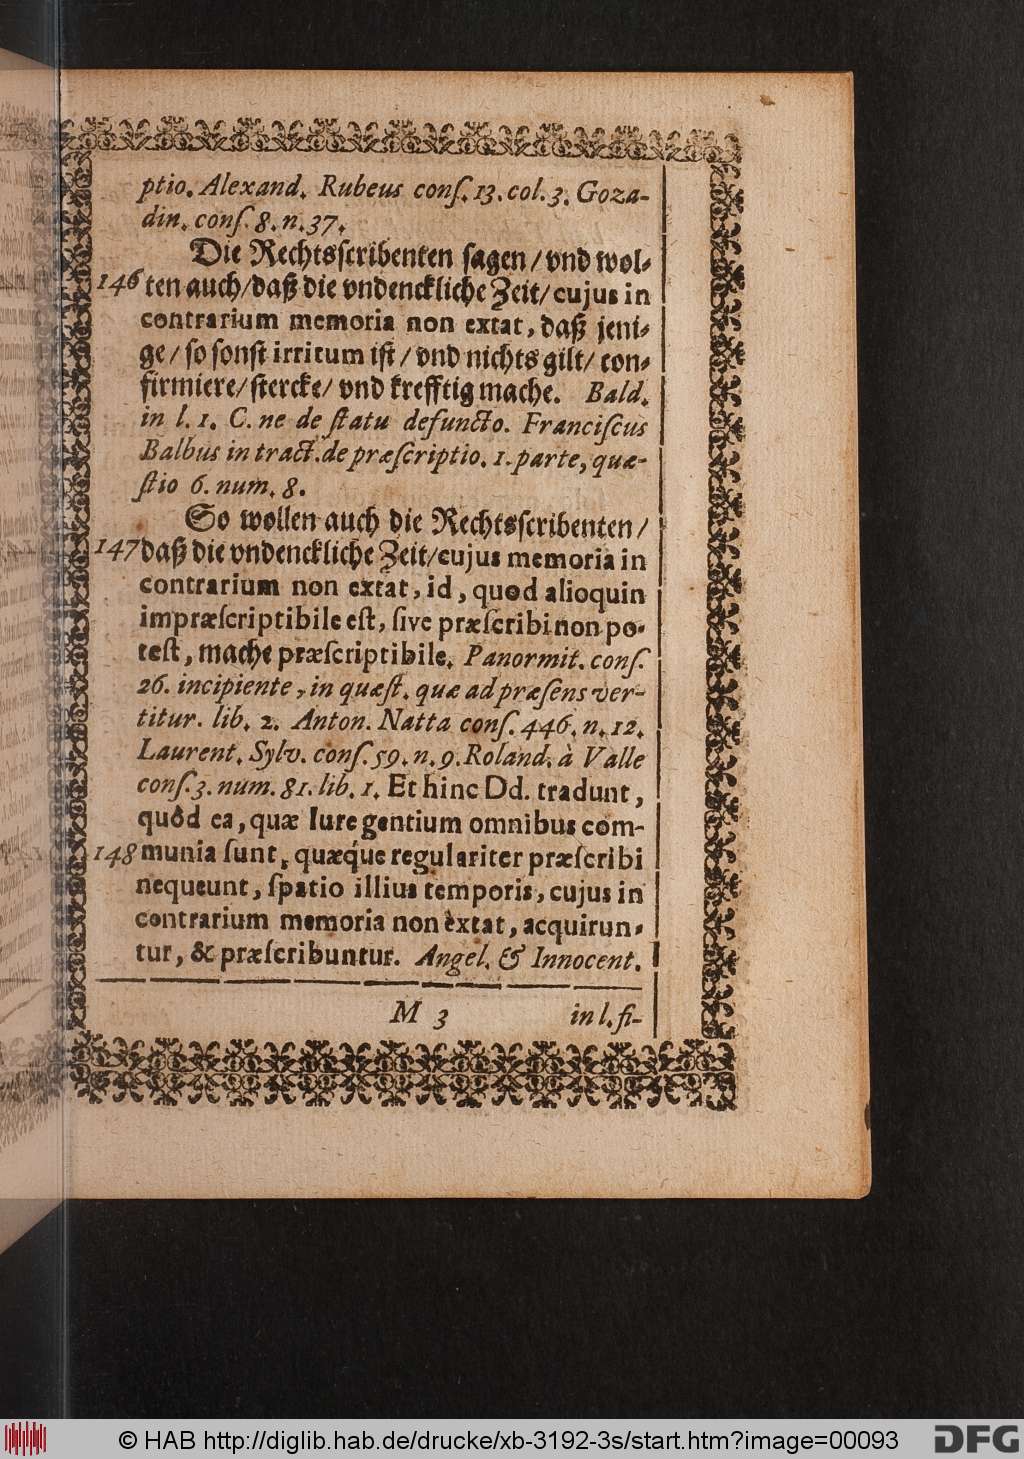 ptio. Alexand. Rubeus conſ. 13. col. 3. Goza-
din. conſ. 8. n. 37.
Die Rechtsſcribenten ſagen / vnd wol-
146 ten auch / daß die vndenckliche Zeit / cujus in
contrarium memoria non extat, daß jeni-
ge / ſo ſonſt irritum iſt / vnd nichts gilt / con-
firmiere / ſtercke / vnd krefftig mache. Bald.
in l. 1. C. ne de ſtatu defuncto. Franciſcus
Balbus in tract. de præſcriptio. 1. parte, quæ-
ſtio 6. num. 8.
So wollen auch die Rechtsſcribenten /
147 daß die vndenckliche Zeit / cujus memoria in
contrarium non extat, id, quod alioquin
impræſcriptibile eſt, ſive præſcribi non po-
teſt, mache præſcriptibile. Panormit. conſ.
26. incipiente, in quæſt. quæ ad præſens ver-
titur. lib. 2. Anton. Natta conſ. 446. n. 12.
Laurent. Sylv. conſ. 59. n. 9. Roland. à Valle
conſ. 3. num. 81. lib. 1. Et hinc Dd. tradunt,
quòd ea, quæ Iure gentium omnibus com-
148 munia ſunt, quæq́ue regulariter præſcribi
nequeunt, ſpatio illius temporis, cujus in
contrarium memoria non èxtat, acquirun-
tur, & præſcribuntur. Angel. & Innocent.
M 3 in l. fi-
© HAB http://diglib.hab.de/drucke/xb-3192-3s/start.htm?image=00093
DFG